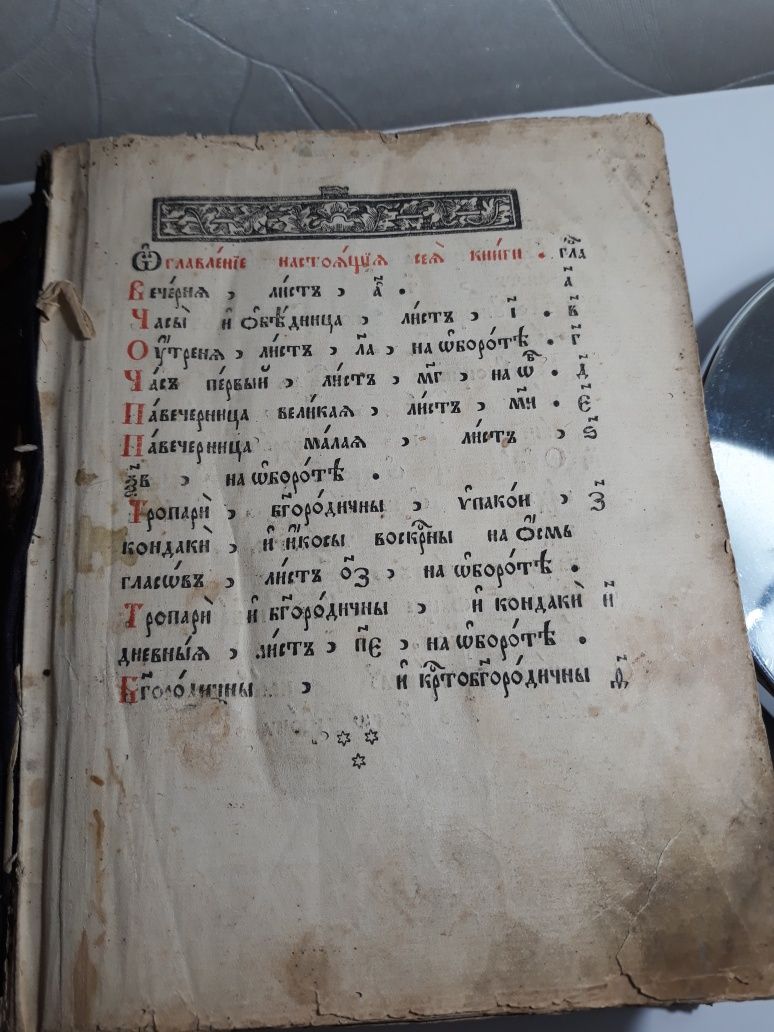 Ѡ҆главле́нїе настоѧ́щїѧ сеѧ̀ кни́ги. гла̑
Вече́рнѧ, ли́стъ, а҃. а҃
Часы̀ и҆ ѻ҆бѣ́дница, ли́стъ, і҃. в҃
Оу҆́тренѧ, ли́стъ, л҃а, на ѡ҆боро́тѣ. г҃
Ча́съ пе́рвый, ли́стъ, м҃г, на ѡ҆б. д҃
Па́вечерница вели́каѧ, ли́стъ, м҃и. є҃
Па́вечерница ма́лаѧ, ли́стъ, ѕ҃
ѯ҃в, на ѡ҆боро́тѣ.
Тропарѝ, бг҃оро́дичны, ѵ҆пако́и, з҃
кондакѝ, и҆ и҆́косы воскрⷭ҇ны на ѻ҆́смь
гласѡ́въ, ли́стъ ѻ҃з, на ѡ҆боро́тѣ.
Тропарѝ и҆ бг҃оро́дичны, и҆ кондакѝ и҃
дневны́ѧ, ли́стъ, п҃є, на ѡ҆боро́тѣ.
Бг҃оро́дичны, и҆ крⷭ҇тобг҃оро́дичны ѳ҃